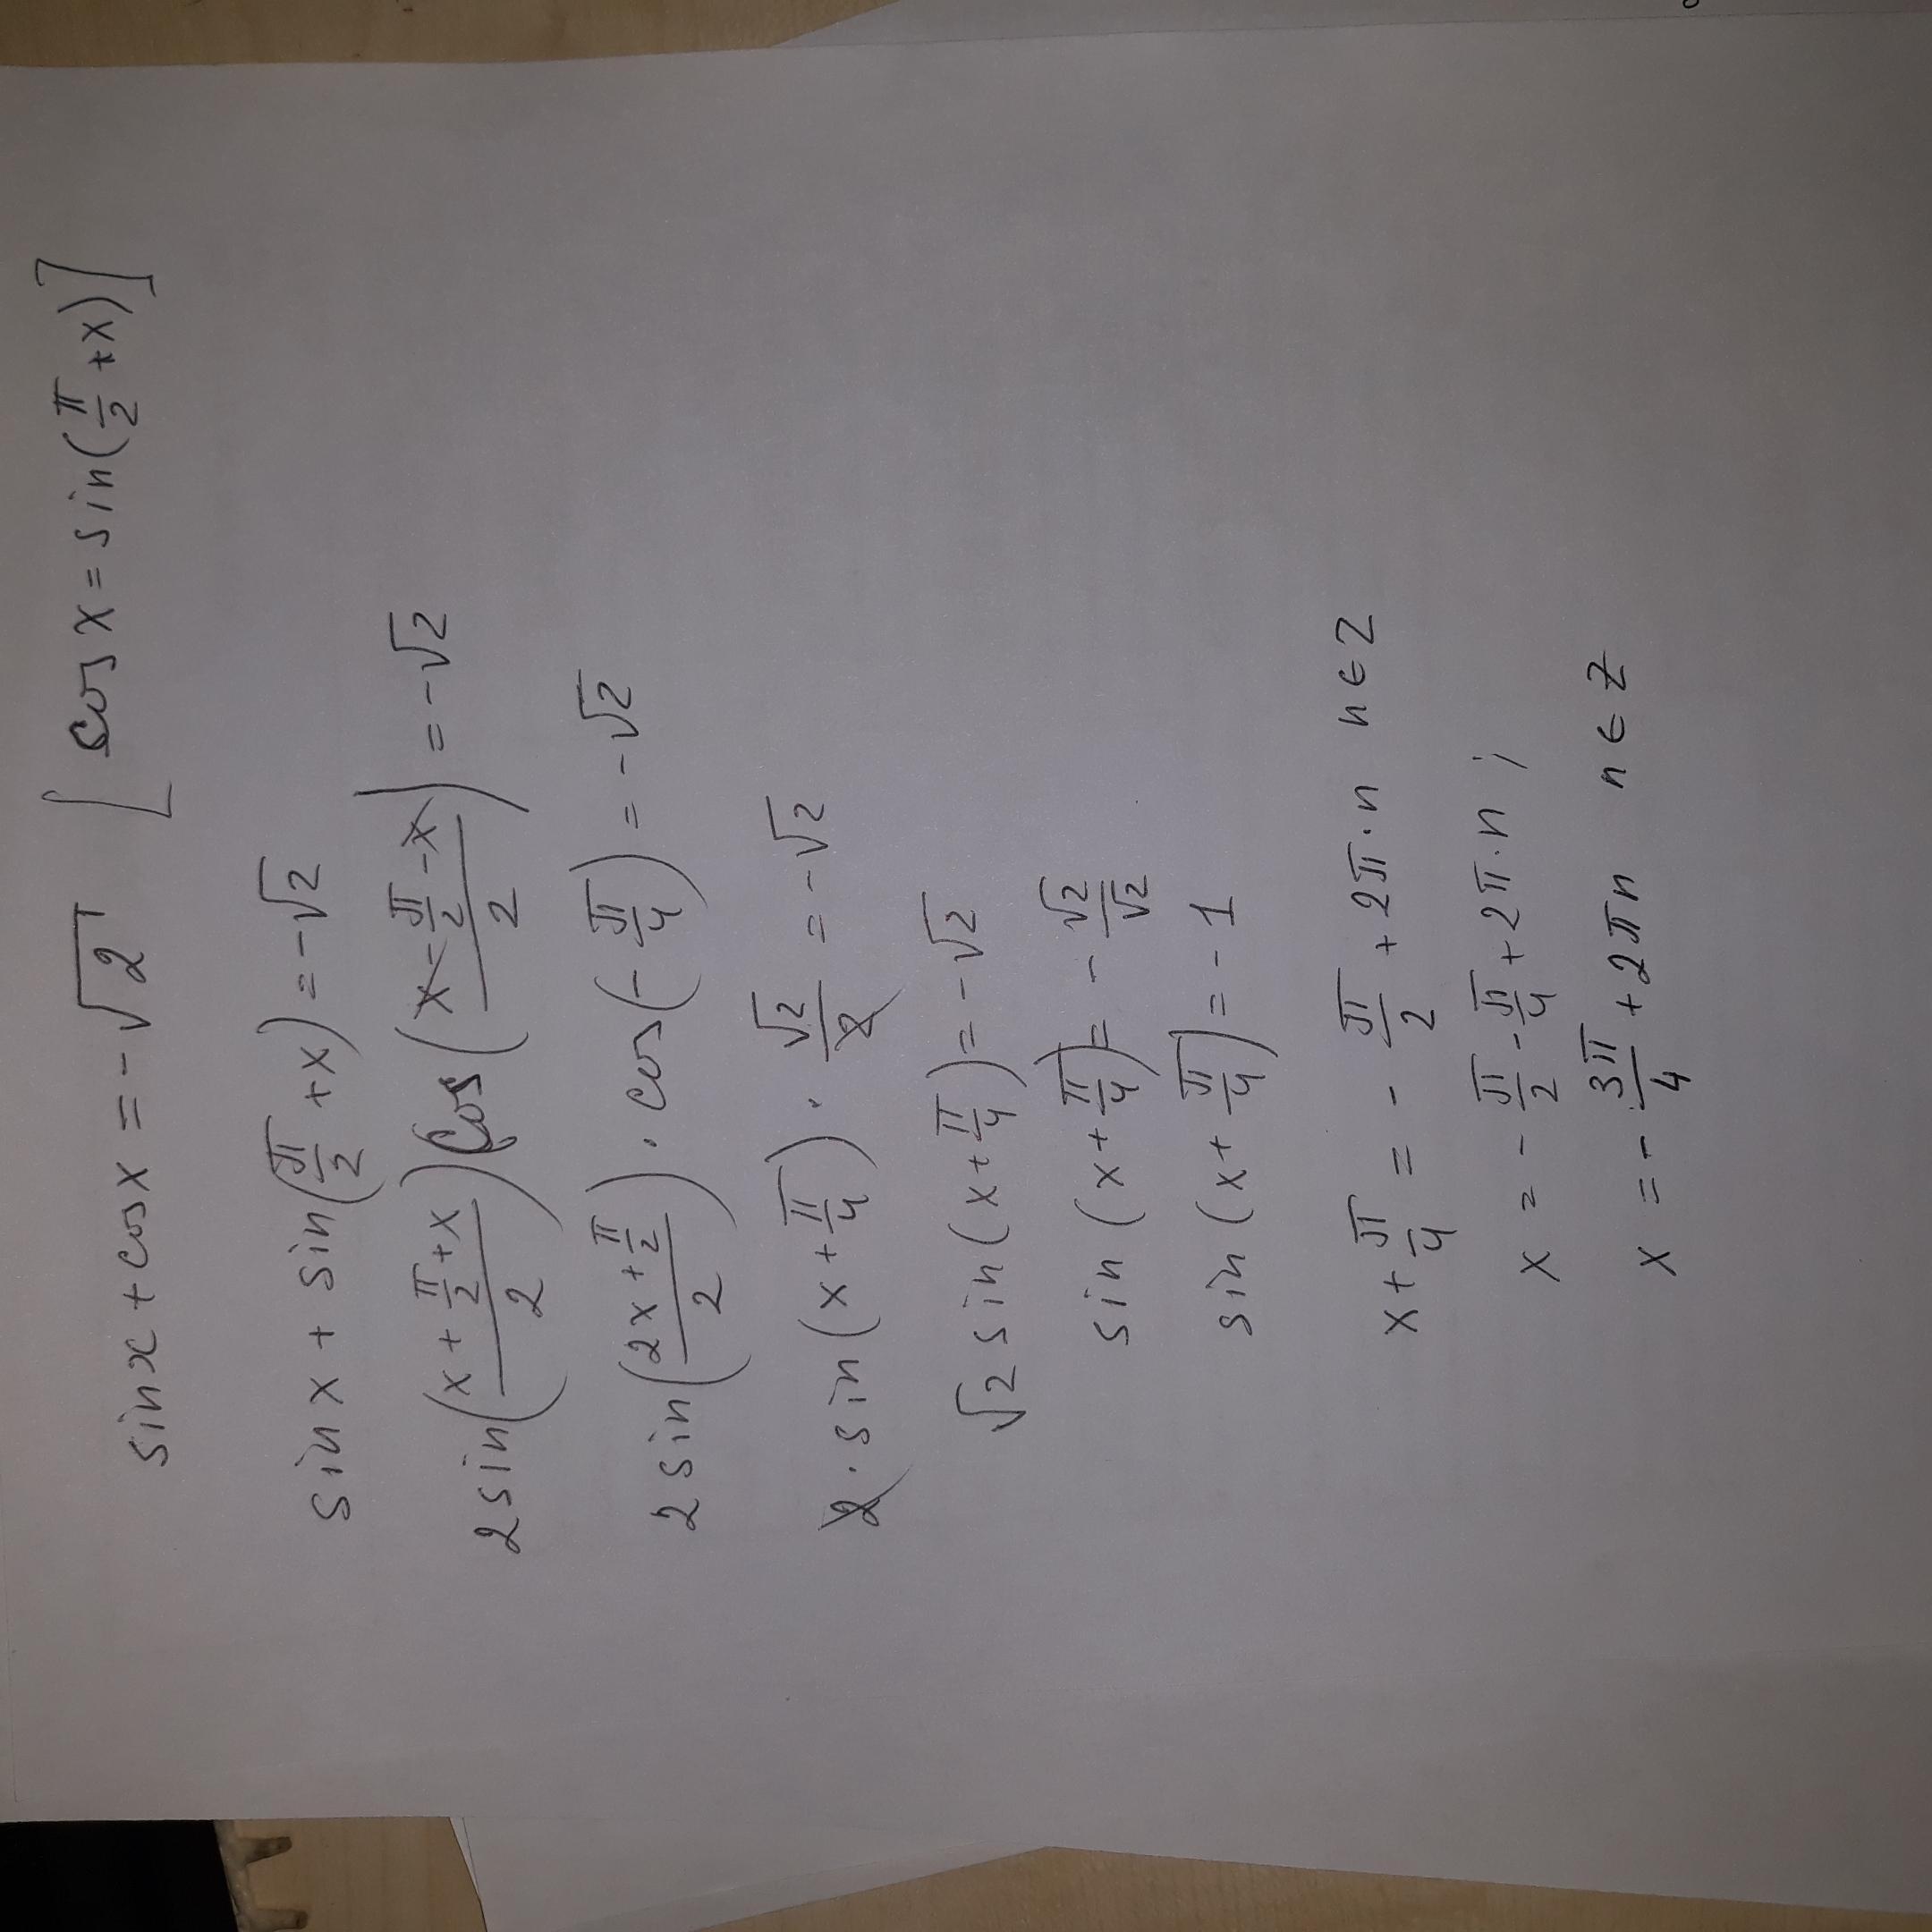 sinx + cosx = -√2 [cosx = sin(π/2 + x)]
sinx + sin(π/2 + x) = -√2
2sin((x + π/2 + x)/2)cos((x - π/2 - x)/2) = -√2
2sin((2x + π/2)/2) · cos(-π/4) = -√2
2 · sin(x + π/4) · √2/2 = -√2
√2 sin(x + π/4) = -√2
sin(x + π/4) = -√2/√2
sin(x + π/4) = -1
x + π/4 = -π/2 + 2π·n n∈Z
x = -π/2 - π/4 + 2π·n;
x = -3π/4 + 2πn n∈Z